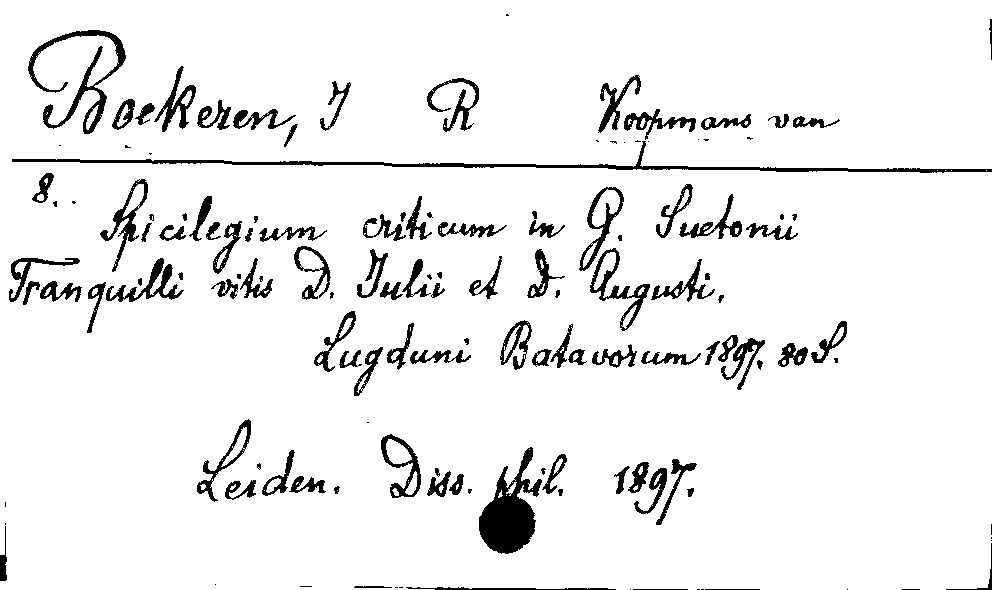 Boekeren, J R Koopmans van
8.
Spicilegium criticum in G. Suetonii
Tranquilli vitis D. Julii et D. Augusti.
Lugduni Batavorum 1897. 80 S.
Leiden. Diss. phil. 1897.